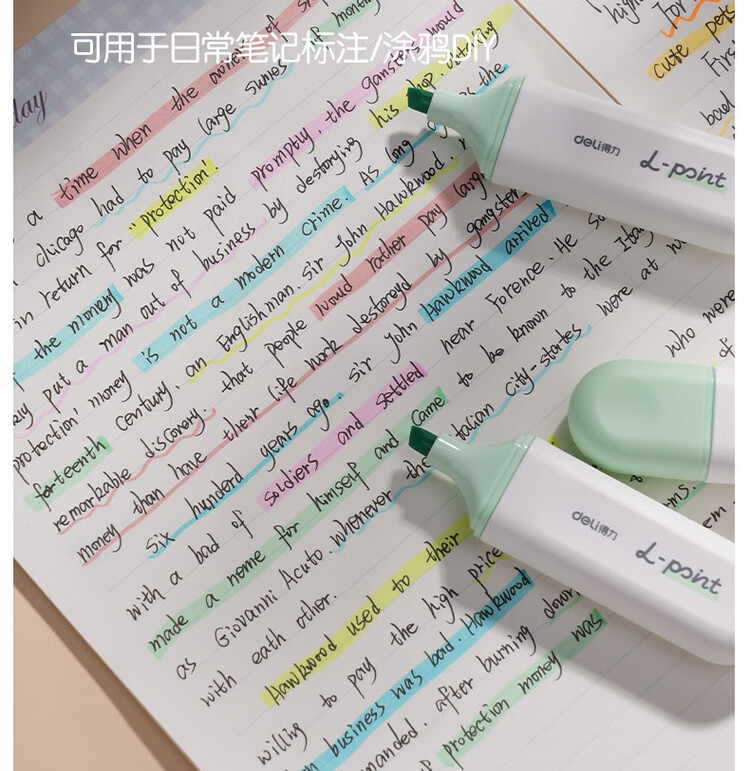 可用于日常笔记标注/涂鸦DIY
day
a time when the owners of s
chicago had to pay large sumes of money
in return for "protection'. promptly, the gansters would
the moneny was not paid his shop.
ey put a man out of business by destorying
protection' money is not a modern crime. As long the
forteenth century, an English man. sir John Hawkwood,
remarkable discovery. that people would rather pay large
money than have their life work destoroyd by gangsters
six hunderd years ago. sir John Hawkwood arrived
with a bad of soldiers and settled near Forence. He so
made a nome for himself and came to be known to the Ita
as Giovanni Acuto. whenever the Italian city-startes were at w
with eath other. Hawkwood used to their
willing to pay the high price
business was bad. Hawkwood
manded. after burning down
protection money was
high
Tor
cute pets
Firs
bad
who were
of
rms.
em
deli得力
L-point
deli得力
L-point